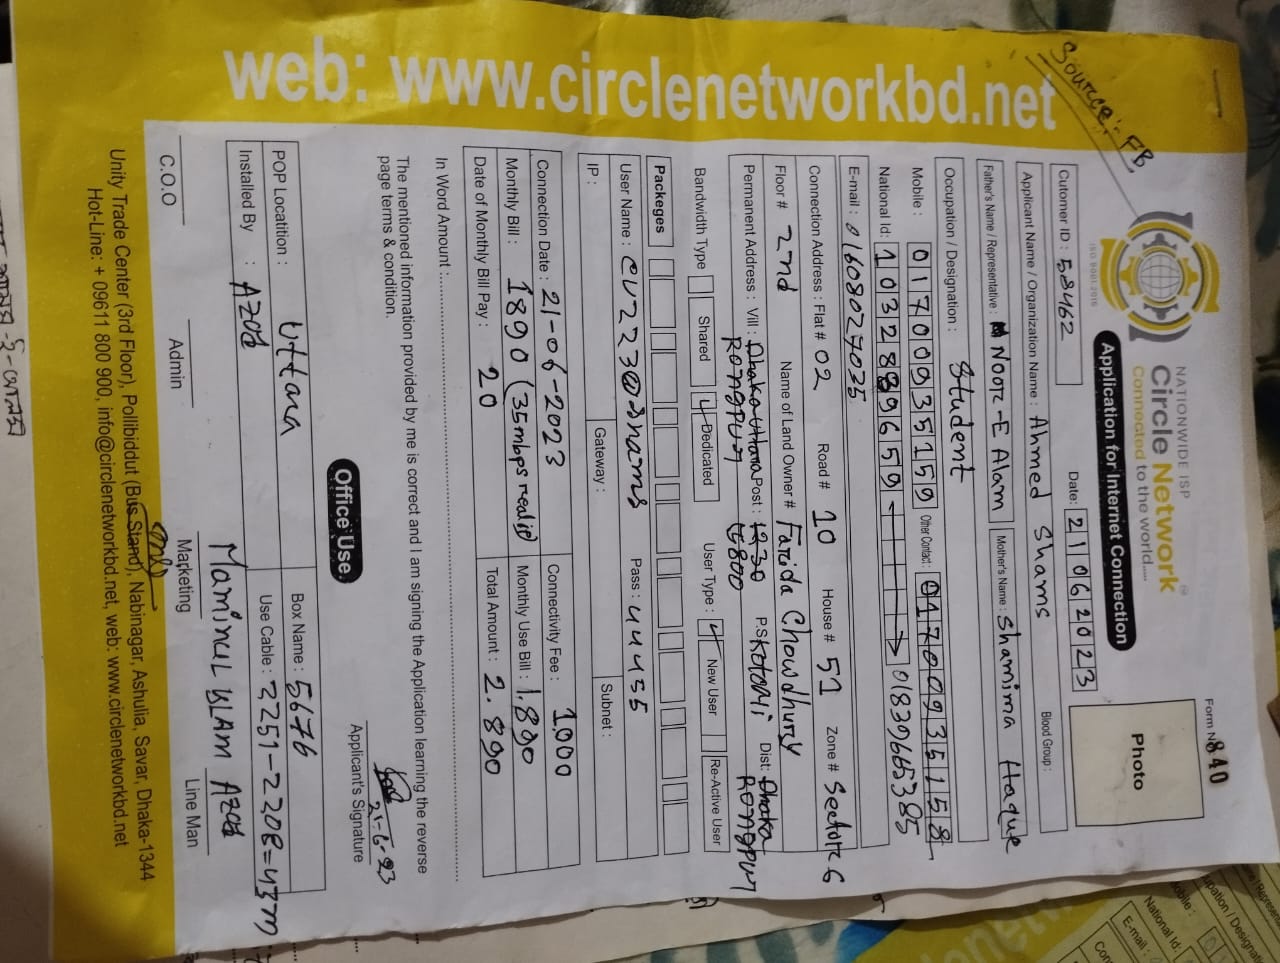 web: www.circlenetworkbd.net
Source: FB
NATIONWIDE ISP
Circle Network
Connected to the world.....
ISO 9001:2015
Application for Internet Connection
Form N 840
Photo
Cutomer ID : 58462 Date: 21062023
Applicant Name / Organization Name : Ahmed Shams Blood Group :
Father's Name / Representative : Noor-E Alam Mother's Name : Shamima Haque
Occupation / Designation : Student
Mobile : 01700935159 Other Contact : 01700935158
National Id: 1032889659 01839665385
E-mail : 01608027035
Connection Address : Flat # 02 Road # 10 House # 51 Zone # Sector 6
Floor # 2nd Name of Land Owner # Farida Chowdhury
Permanent Address : Vill : Dhaka Uttara Post : 1230 P.S Kotoali Dist: Dhaka
Rongpur 5400 Rongpur
Bandwidth Type Shared Dedicated User Type : New User Re-Active User
Packeges
User Name : Pass : 44455
IP : Gateway : Subnet :
Connection Date : 21-06-2023 Connectivity Fee : 1000
Monthly Bill : 1890 (35mbps real ip) Monthly Use Bill : 1.890
Date of Monthly Bill Pay : 20 Total Amount : 2.890
In Word Amount :
The mentioned information provided by me is correct and I am signing the Application learning the reverse
page terms & condition.
21-6-23
Applicant's Signature
Office Use
POP Locatition : Uttara Box Name : 5676
Installed By : Azad Use Cable : 2251-2208=43m
Maminul Islam Azad
C.O.O Admin Marketing Line Man
Unity Trade Center (3rd Floor), Pollibiddut (Bus Stand), Nabinagar, Ashulia, Savar, Dhaka-1344
Hot-Line: + 09611 800 900, info@circlenetworkbd.net, web: www.circlenetworkbd.net